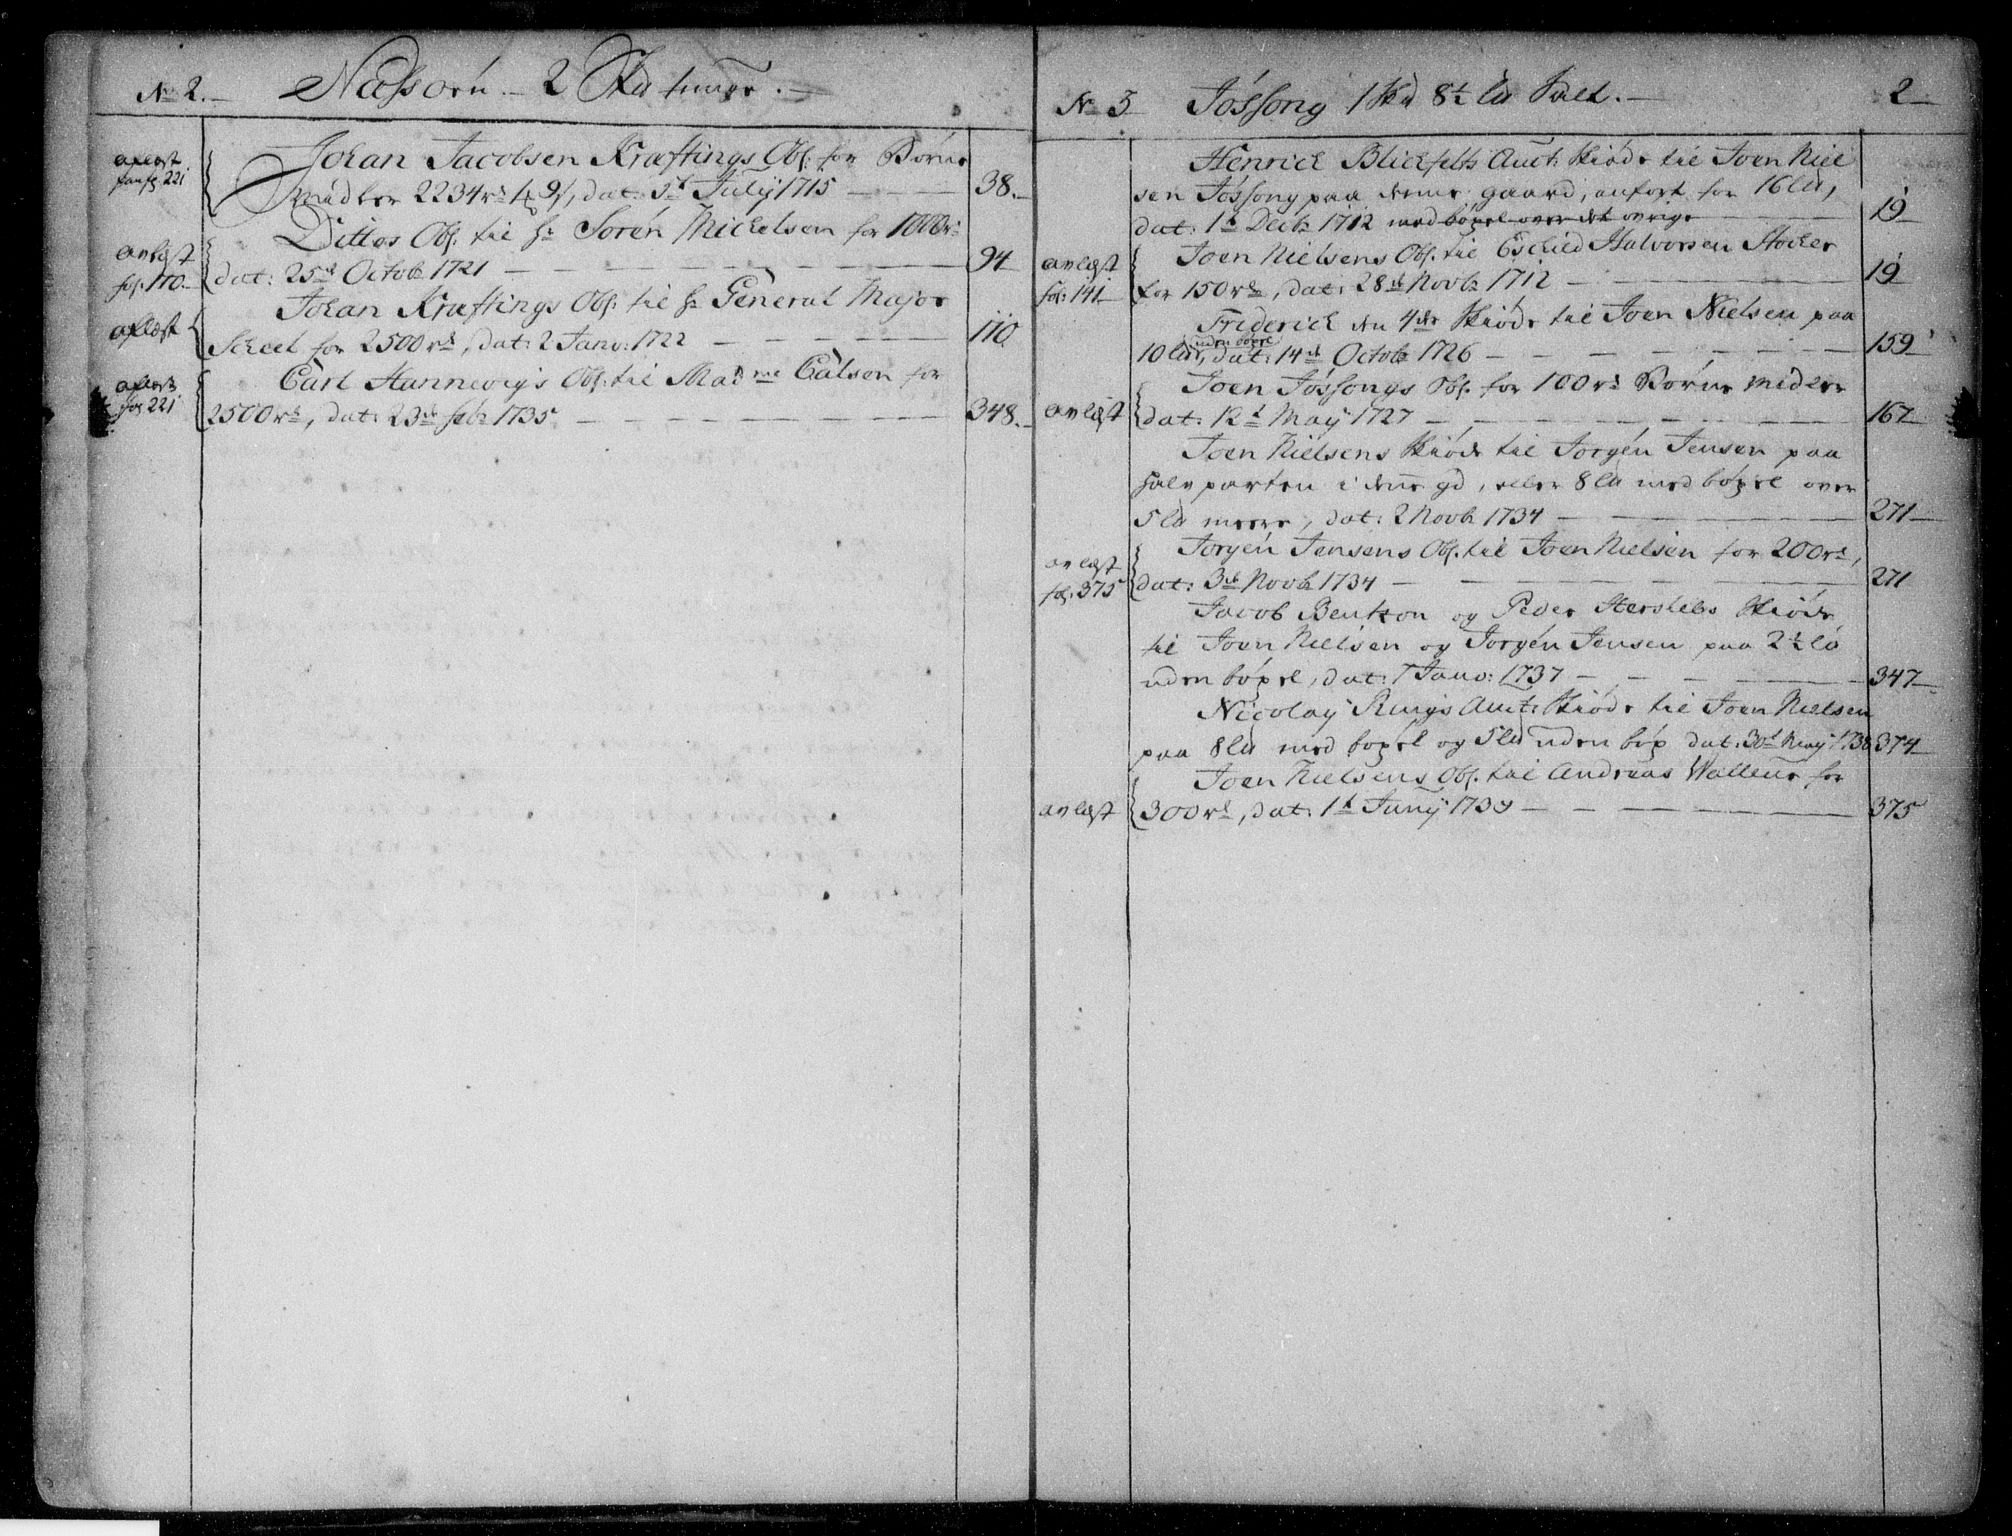 No 2. Næssøen 2 Skd tunge.
aflæst
pan fol 221
Johan Jacobsen Kræftings Obl: for Børne
midler 2234 rd 1 ₰ 9 s, dat: 5t July 1715 38.
avlæst
fol. 110
Dittos Obl. til Hr Sørén Mickelsen for 1000 rd
dat: 25de Octob. 1721 94
aflæst
Johan Kræftings Obl. til Hr General Major
Scheel for 2500 rd, dat: 2 Janv: 1722 110
aflæst
fol 221
Carl Hannevigs Obl. til Madme Calson for
2500 rd, dat: 23de feb: 1735 348.
No 3 Jössong 1 Skd 8½ Ld Salt. 2
Henrich Blickfelts Auct: Skiöde til Joen Niel
sen Jössong paa denne gaard, anfört for 16 Ld,
dat: 1t Decb: 1712 med böxel over det övrige 19
avlæst
fol: 141
Joen Nielsens Obl. til Eschild Halvorsen Stocker
for 150 rd, dat: 28de Novb: 1712 19
Friderich den 4des Skiöde til Joen Nielsen paa
uden böxel
10 Ld, dat: 14de Octob: 1726 159
avlæst
Joen Jössongs Obl. for 100 rd Børne midler
dat: 12t May 1727 167
Joen Nielsens Skiöde til Jorgén Jensen paa
halvparten i denne gd, eller 8 Ld med böxel over
5 Ld meere, dat: 2 Novb. 1734 271
avlæst
fol. 375
Jorgén Jensens Obl. til Joen Nielsen for 200 rd,
dat: 3de Novb. 1734 271
Jacob Bentzon og Peder Herslebs Skiöde
til Joen Nielsen og Jorgén Jensen paa 2½ Ld
uden böxel, dat: 7 Janv: 1737 347
Nicolay Rings Auct: Skiöde til Joen Nielsen
paa 8 Ld med böxel og 5 Ld uden böx dat: 30t May 1738 374
avlæst
Joen Nielsens Obl. til Andreas Wallene for
300 rd, dat: 1t Juny 1739 375